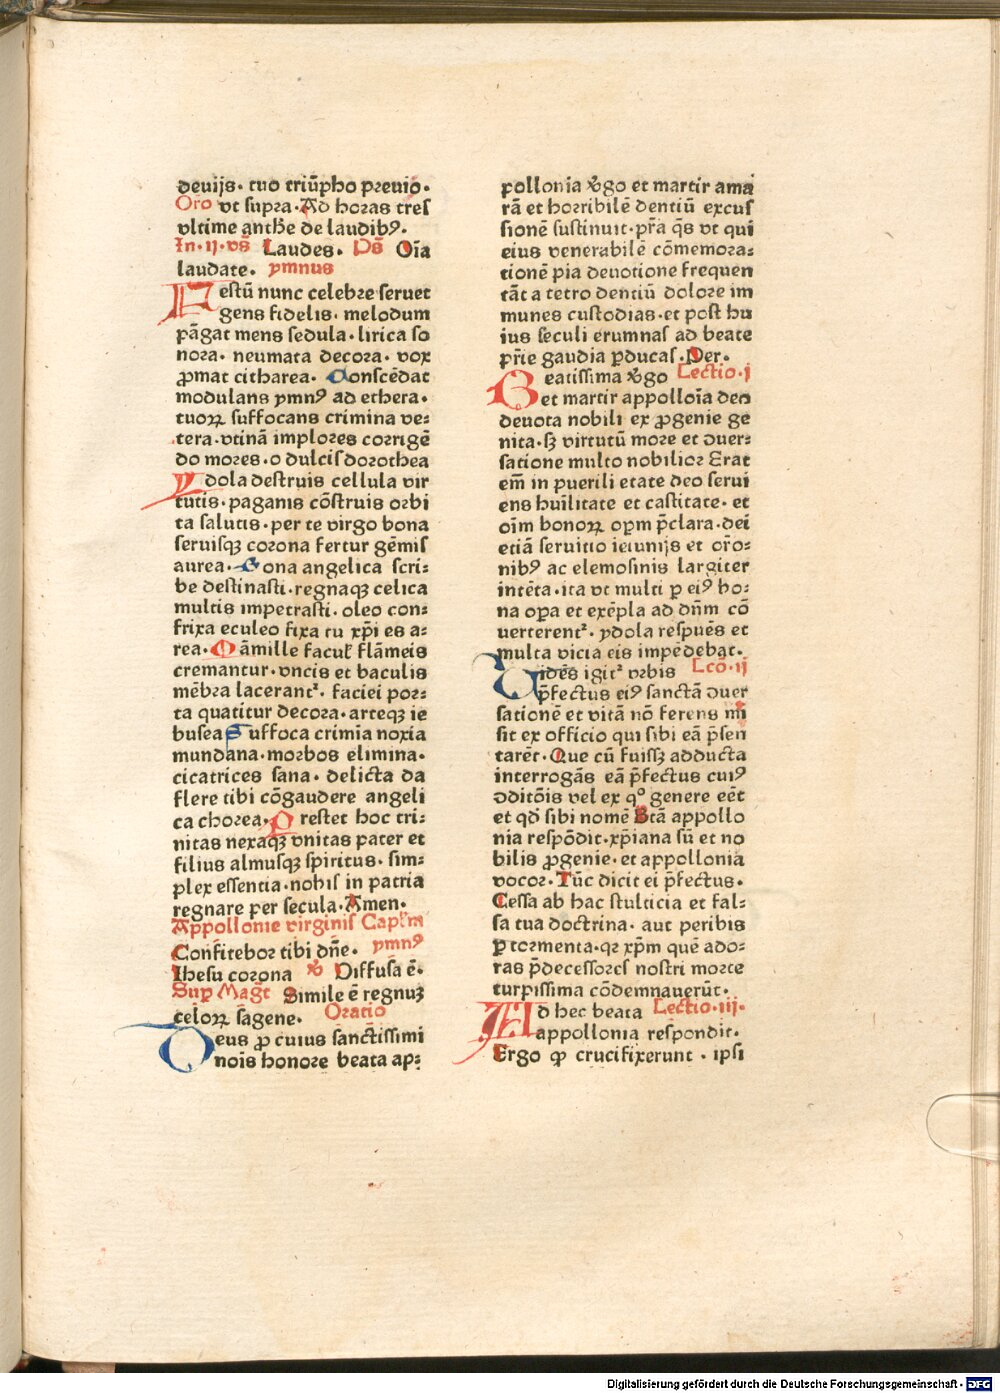 deuijs. tuo triūpho preuio.
Oro vt supra. Ad horas tres
vltime anthe de laudibꝰ.
In. ij. vs̄ Laudes. Ps̄ Oīa
laudate. ymnus
Festū nunc celebre seruet
gens fidelis. melodum
pāgat mens sedula. lirica so
nora. neumata decora. vox
ꝓmat citharea. Conscēdat
modulans ymnꝰ ad ethera.
tuoꝝ suffocans crimina ve⸗
tera. vtinā implores corrigē
do mores. o dulcis dorothea
Ydola destruis cellula vir
tutis. paganis cōstruis orbi
ta salutis. per te virgo bona
seruisqꝫ corona fertur gēmis
aurea. Sona angelica scri⸗
be destinasti. regnaqꝫ celica
multis impetrasti. oleo con⸗
frixa eculeo fixa tu xp̄i es a⸗
rea. Māmille facul̄ flāmeis
cremantur. vncis et baculis
mēbra lacerant᷑. faciei por⸗
ta quatitur decora. arteqꝫ ie
busea Suffoca crimīa noxia
mundana. morbos elimina.
cicatrices sana. delicta da
flere tibi cōgaudere angeli
ca chorea. Prestet hoc tri⸗
nitas nexaqꝫ vnitas pater et
filius almusqꝫ spiritus. sim⸗
plex essentia. nobis in patria
regnare per secula. Amen.
Appollonie virginis Capl̄m
Confitebor tibi dn̄e. ymnꝰ
Ihesu corona ℣ Diffusa ē.
Suꝑ Magt̄ Simile ē regnuꝫ
celoꝝ sagene. Oratio
Deus ꝓ cuius sanctissimi
noīs honore beata ap⸗
pollonia v̄go et martir ama
rā et horribilē dentiū excus
sionē sustinuit. pr̄a qs̄ vt qui
eius venerabilē cōmemora⸗
tionē pia deuotione frequen
tāt a tetro dentiū dolore im
munes custodias. et post hu
ius seculi erumnas ad beate
pr̄ie gaudia ꝑducas. Per.
Beatissima v̄go Lectio. j
et martir appolloīa deo
deuota nobili ex ꝓgenie ge
nita. sꝫ virtutū more et ꝯuer⸗
satione multo nobilior Erat
em̄ in puerili etate deo serui
ens huīlitate et castitate. et
oīm bonoꝝ oꝑm p̄clara. dei
etiā seruitio ieiunijs et or̄o⸗
nibꝰ ac elemosinis largiter
intēta. ita vt multi ꝑ eiꝰ bo⸗
na oꝑa et exēpla ad dn̄m cō
uerterent᷑. ydola respuēs et
multa vicia eis impedebat.
Uidēs igit᷑ vrbis Lcō. ij
p̄fectus eiꝰ sanctā ꝯuer
sationē et vitā nō ferens mi
sit ex officio qui sibi eā p̄sen
tarēt. Que cū fuissꝫ adducta
interrogās eā p̄fectus cuiꝰ
ꝯditōis vel ex qͦ genere eēt
et qd̄ sibi nomē Btā appollo
nia respōdit. xp̄iana sū et no
bilis ꝓgenie. et appollonia
vocor. Tūc dicit ei p̄fectus.
Cessa ab hac stulticia et fal⸗
sa tua doctrina. aut peribis
ꝑ tormenta. qꝛ xp̄m quē ado⸗
ras p̄decessores nostri morte
turpissima cōdemnauerūt.
Ad hec beata Lectio. iij.
appollonia respondit.
Ergo ꝙ crucifixerunt. ipsi
Digitalisierung gefördert durch die Deutsche Forschungsgemeinschaft - DFG